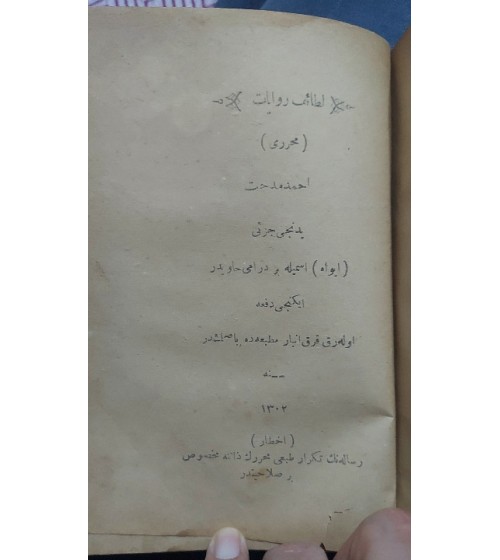 لطائف روايات
( محررى )
احمد مدحت
يدنجى جزئى
( ايواه ) اسميله بر درامى حاويدر
ايكنجى دفعه
اوله‌رق قرق انبار مطبعه‌سنده باصلمشدر
سنه
١٣٠٢
( اخطار )
رساله‌نك تكرار طبعى محررك ذاتنه مخصوص
بر صلاحيتدر